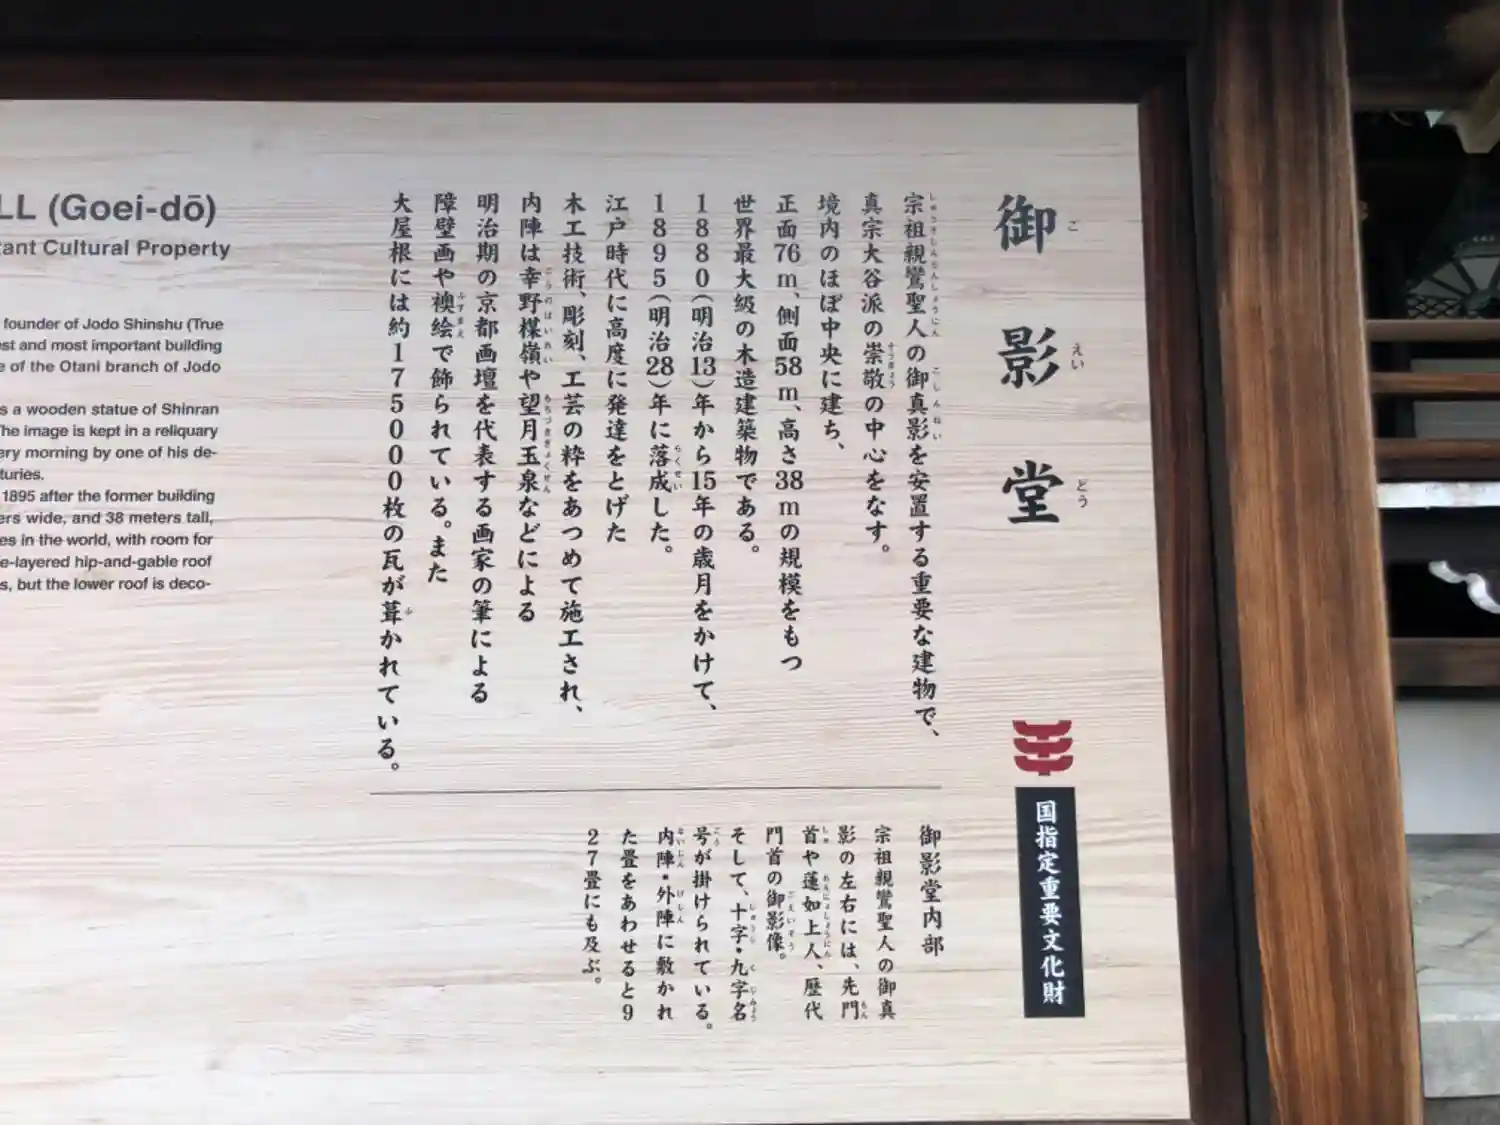 御影堂
ご えい どう
国指定重要文化財
宗祖親鸞聖人の御真影を安置する重要な建物で、
真宗大谷派の崇敬の中心をなす。
境内のほぼ中央に建ち、
正面76m、側面58m、高さ38mの規模をもつ
世界最大級の木造建築物である。
1880(明治13)年から15年の歳月をかけて、
1895(明治28)年に落成した。
江戸時代に高度に発達をとげた
木工技術、彫刻、工芸の粋をあつめて施工され、
内陣は幸野楳嶺や望月玉泉などによる
明治期の京都画壇を代表する画家の筆による
障壁画や襖絵で飾られている。また
大屋根には約175000枚の瓦が葺かれている。
御影堂内部
宗祖親鸞聖人の御真
影の左右には、先門
首や蓮如上人、歴代
門首の御影像。
そして、十字・九字名
号が掛けられている。
内陣・外陣に敷かれ
た畳をあわせると9
27畳にも及ぶ。
LL (Goei-dō)
tant Cultural Property
founder of Jodo Shinshu (True
st and most important building
e of the Otani branch of Jodo
s a wooden statue of Shinran
he image is kept in a reliquary
ery morning by one of his de-
turies.
1895 after the former building
ers wide, and 38 meters tall,
es in the world, with room for
e-layered hip-and-gable roof
s, but the lower roof is deco-